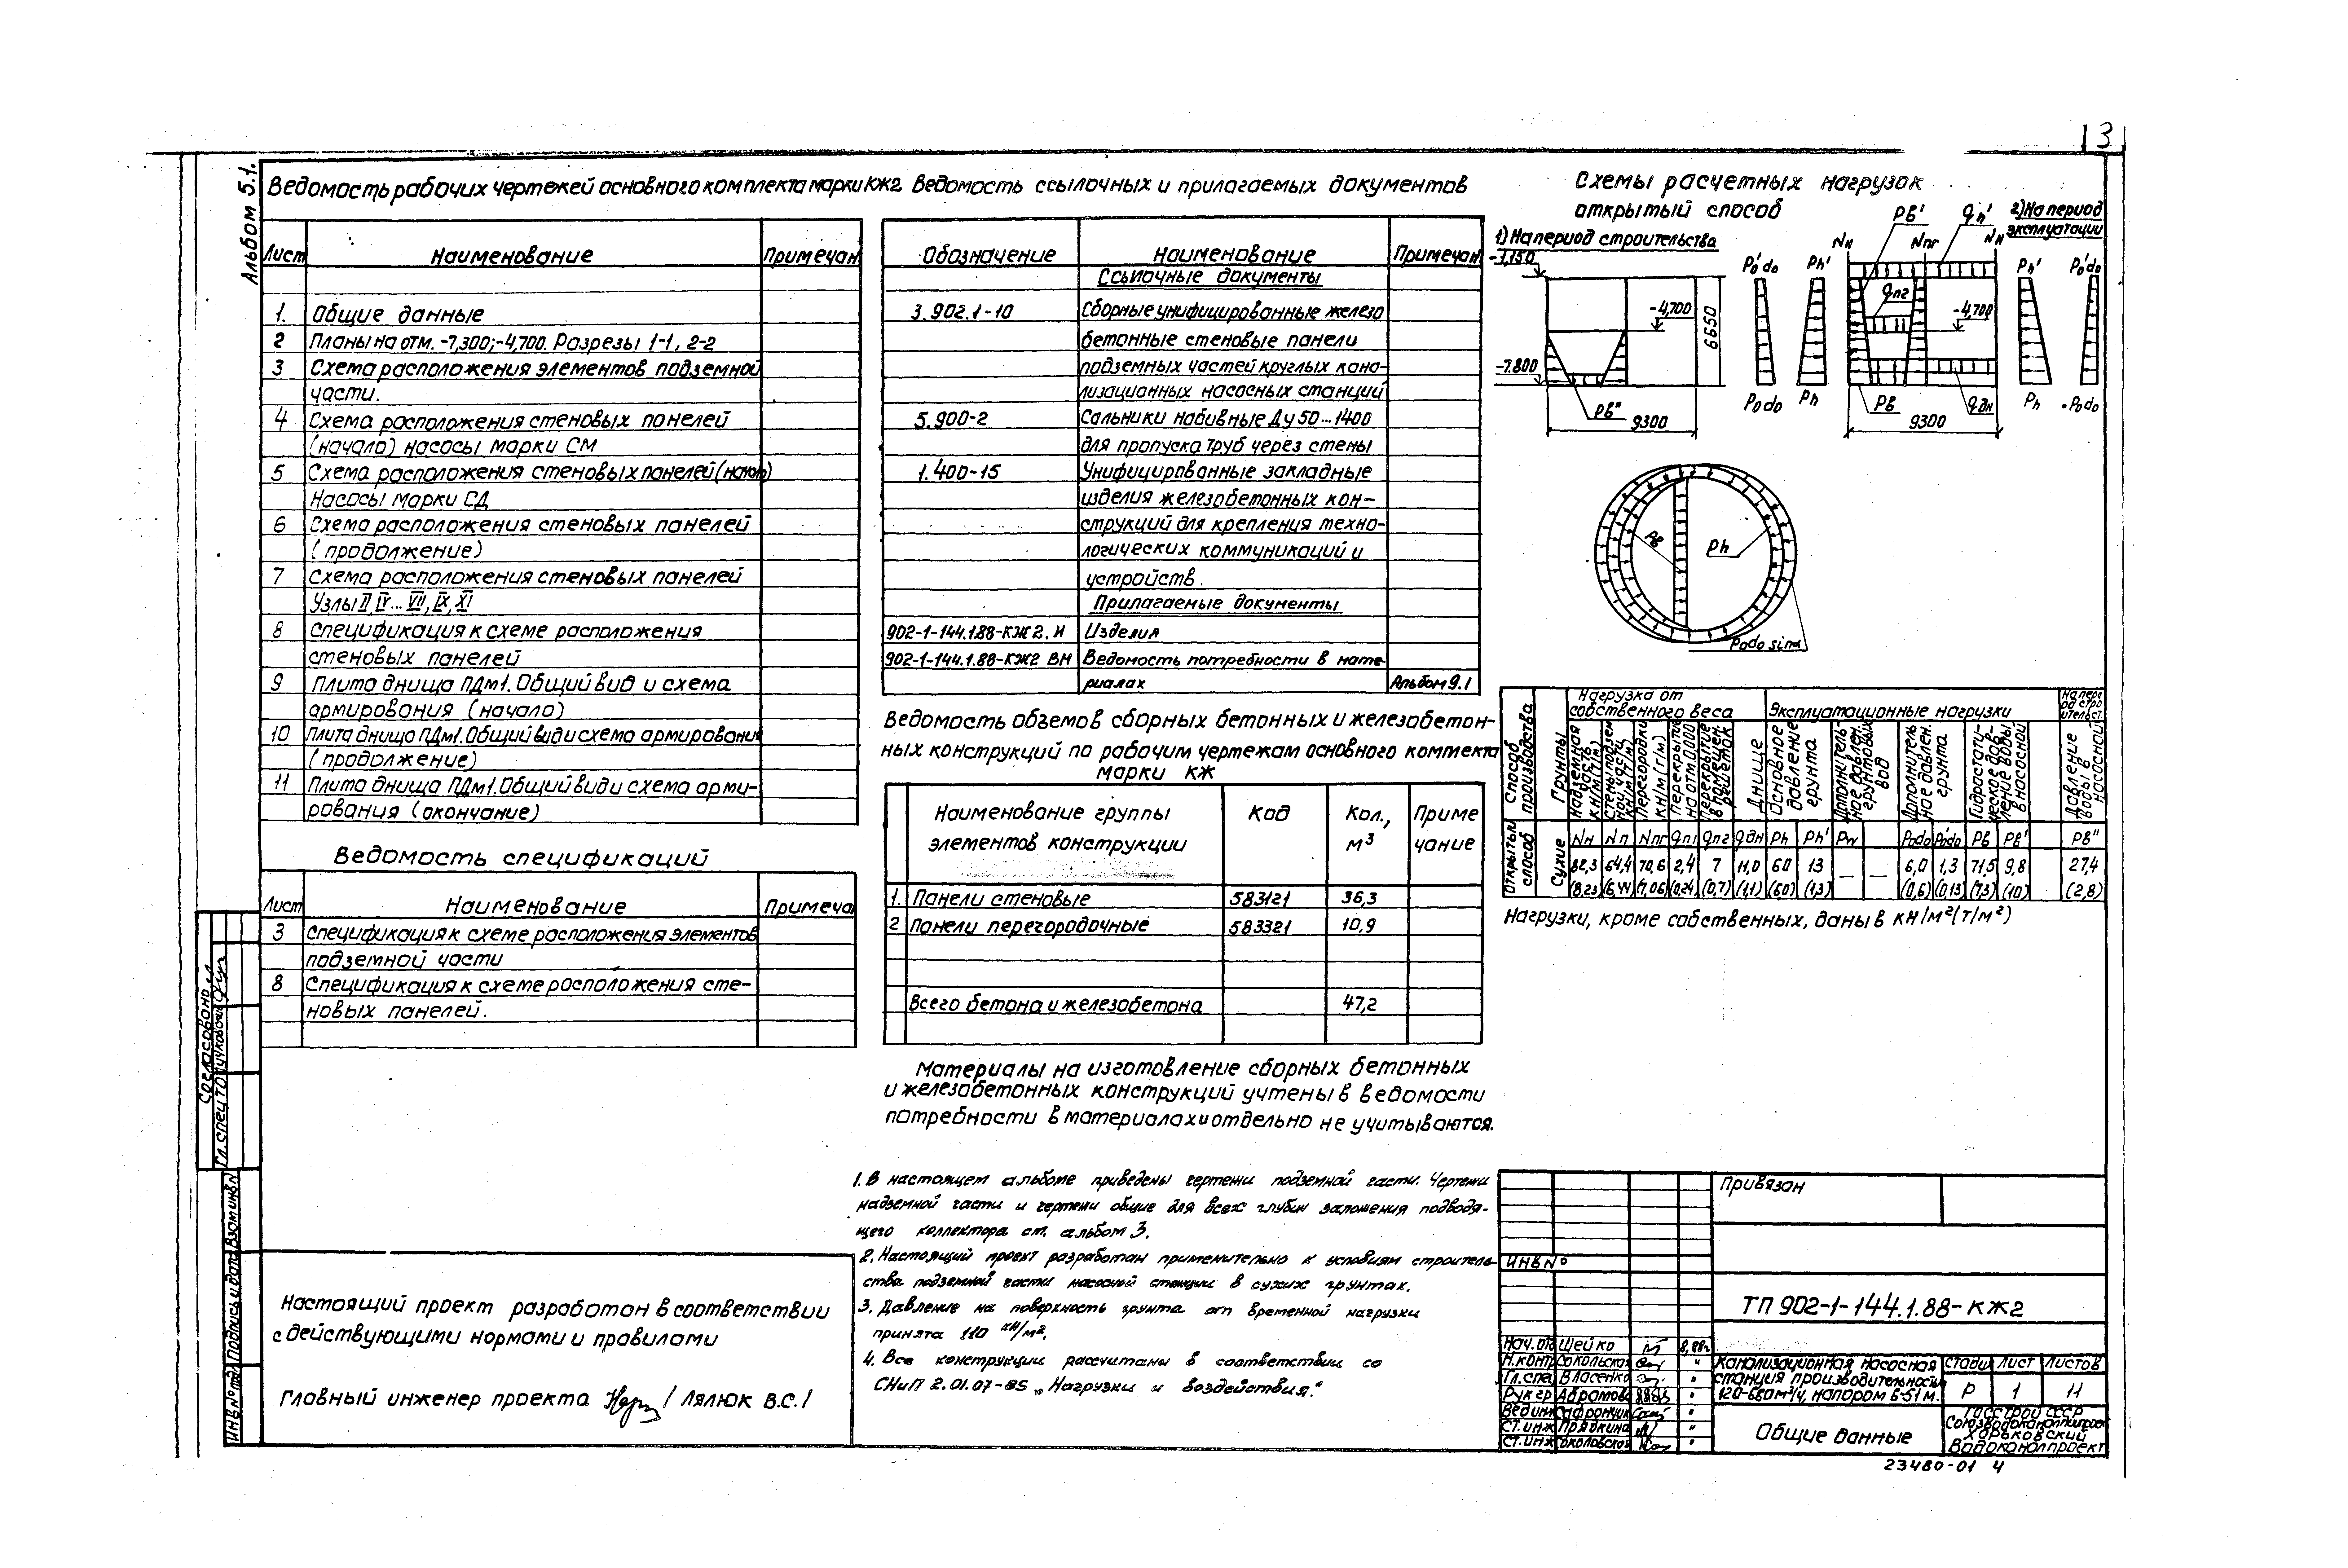 3
Альбом 5.1.
Ведомость рабочих чертежей основного комплекта марки КЖ2
Лист Наименование Примечан
1. Общие данные
2 Планы на отм. -7,300; -4,700. Разрезы 1-1, 2-2
3 Схема расположения элементов подземной
части.
4 Схема расположения стеновых панелей
(начало) насосы марки СМ
5 Схема расположения стеновых панелей (начало)
Насосы марки СД
6 Схема расположения стеновых панелей
(продолжение)
7 Схема расположения стеновых панелей
Узлы II, IV... VII, IX, XI
8 Спецификация к схеме расположения
стеновых панелей
9 Плита днища ПДм1. Общий вид и схема
армирования (начало)
10 Плита днища ПДм1. Общий вид и схема армирования
(продолжение)
11 Плита днища ПДм1. Общий вид и схема арми-
рования (окончание)
Ведомость спецификаций
Лист Наименование Примеча
3 Спецификация к схеме расположения элементов
подземной части
8 Спецификация к схеме расположения сте-
новых панелей.
Ведомость ссылочных и прилагаемых документов
Обозначение Наименование Примечан
Ссылочные документы
3.902.1-10 Сборные унифицированные железо
бетонные стеновые панели
подземных частей круглых кана-
лизационных насосных станций
5.900-2 Сальники набивные Ду 50...1400
для пропуска труб через стены
1.400-15 Унифицированные закладные
изделия железобетонных кон-
струкций для крепления техно-
логических коммуникаций и
устройств.
Прилагаемые документы
902-1-144.1.88-КЖ2.И Изделия
902-1-144.1.88-КЖ2 ВМ Ведомость потребности в мате-
риалах Альбом 9.1
Ведомость объемов сборных бетонных и железобетон-
ных конструкций по рабочим чертежам основного комплекта
марки КЖ
Наименование группы Код Кол., Приме
элементов конструкции м³ чание
1. Панели стеновые 583121 36,3
2 Панели перегородочные 583321 10,9
Всего бетона и железобетона 47,2
Материалы на изготовление сборных бетонных
и железобетонных конструкций учтены в ведомости
потребности в материалах и отдельно не учитываются.
1. В настоящем альбоме приведены чертежи подземной части. Чертежи
надземной части и чертежи общие для всех глубин заложения подводя-
щего коллектора см. альбом 3.
2. Настоящий проект разработан применительно к условиям строитель-
ства подземной части насосной станции в сухих грунтах.
3. Давление на поверхность грунта от временной нагрузки
принята 110 кН/м².
4. Все конструкции рассчитаны в соответствии со
СНиП 2.01.07-85 „Нагрузки и воздействия."
Настоящий проект разработан в соответствии
с действующими нормами и правилами
Главный инженер проекта / Лялюк В.С./
Схемы расчетных нагрузок
открытый способ
1) На период строительства
2) На период
эксплуатации
-1,150
-4,700
-7.800
6650
Pв"
9300
P₀'do Ph'
P₀do Ph
Nн Pв' Nпг qп' Nн
qпг
-4,700
Pв qдн
9300
Ph' P₀'do
Ph P₀do
Pв Ph
P₀do sinα
Способ производства
Грунты
Нагрузка от
собственного веса
Эксплуатационные нагрузки
На пери
од стро
ительст.
Надземная часть кн/м (т/м)
Стены подзем ной части кн/м (т/м)
Перегородки кн/м (т/м)
Перекрытие на отм. 0,000
Перекрытие в помещен. решеток
Днище
Основное давление грунта
Дополнитель- ное давлен. грунтовых вод
Дополнитель ное давлен. грунта
Гидростати- ческое дав- ление воды в насосной
Давление воды в насосной
Открытый способ
Сухие
Nн Nп Nпг qп1 qпг qдн Ph Ph' Pw P₀do P₀'do Pв Pв' Pв"
82,3 64,4 70,6 2,4 7 11,0 60 13 — — 6,0 1,3 71,5 9,8 27,4
(8,23) (6,44) (7,06) (0,24) (0,7) (1,1) (6,0) (1,3) (0,6) (0,13) (7,3) (10) (2,8)
Нагрузки, кроме собственных, даны в кН/м² (т/м²)
Привязан
ИНВ №
ТП 902-1-144.1.88-КЖ2
Нач. отд Щейко 8,88г.
Н.контр Сокольская "
Гл.спе Власенко "
Рук гр Абрамова "
Вед.инж "
Ст.инж Прядкина "
Ст.инж Соколовская "
Канализационная насосная
станция производительностью
120-660 м³/ч, напором 6-51 м.
Стадия Лист Листов
Р 1 11
Общие данные
Госстрой СССР
Союзводоканалпроект
Харьковский
Водоканалпроект
23480-01 4
Согласовано
Гл. спец ТО
Взам инв N
Подпись и дата
Инв N подл